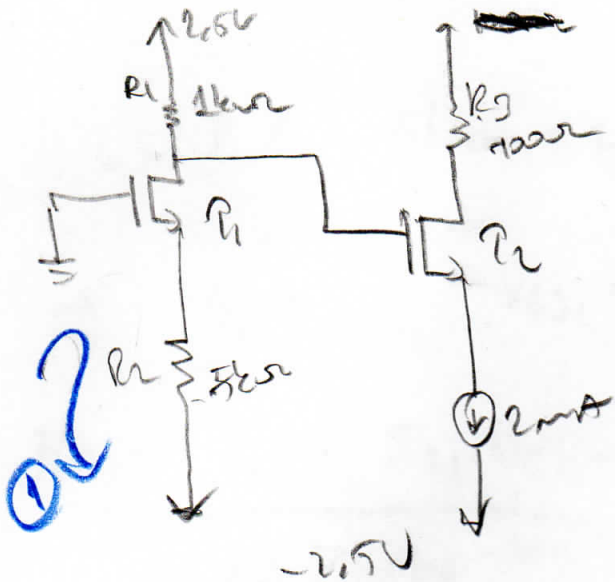 2,5V
R1 1kΩ
R3
100Ω
T1
T2
R2 .5kΩ
2mA
1
-2,5V